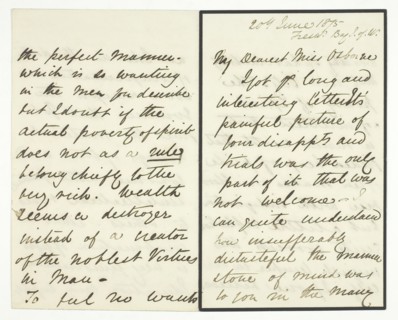 20th June 1875
My Dearest Miss Osborne
I got yr long and
interesting letter. Its
painful picture of
your disappts and
trials was the only
part of it that was
not welcome. I
can quite understand
how insufferably
distasteful the manner &
tone of mind was
to you in the many
the perfect manner
which is so wanting
in the men you describe
but I doubt if the
actual poverty of spirit
does not as a rule
belong chiefly to the
very rich. Wealth
seems a destroyer
instead of a creator
of the noblest Virtues
in Man -
To feel no wants